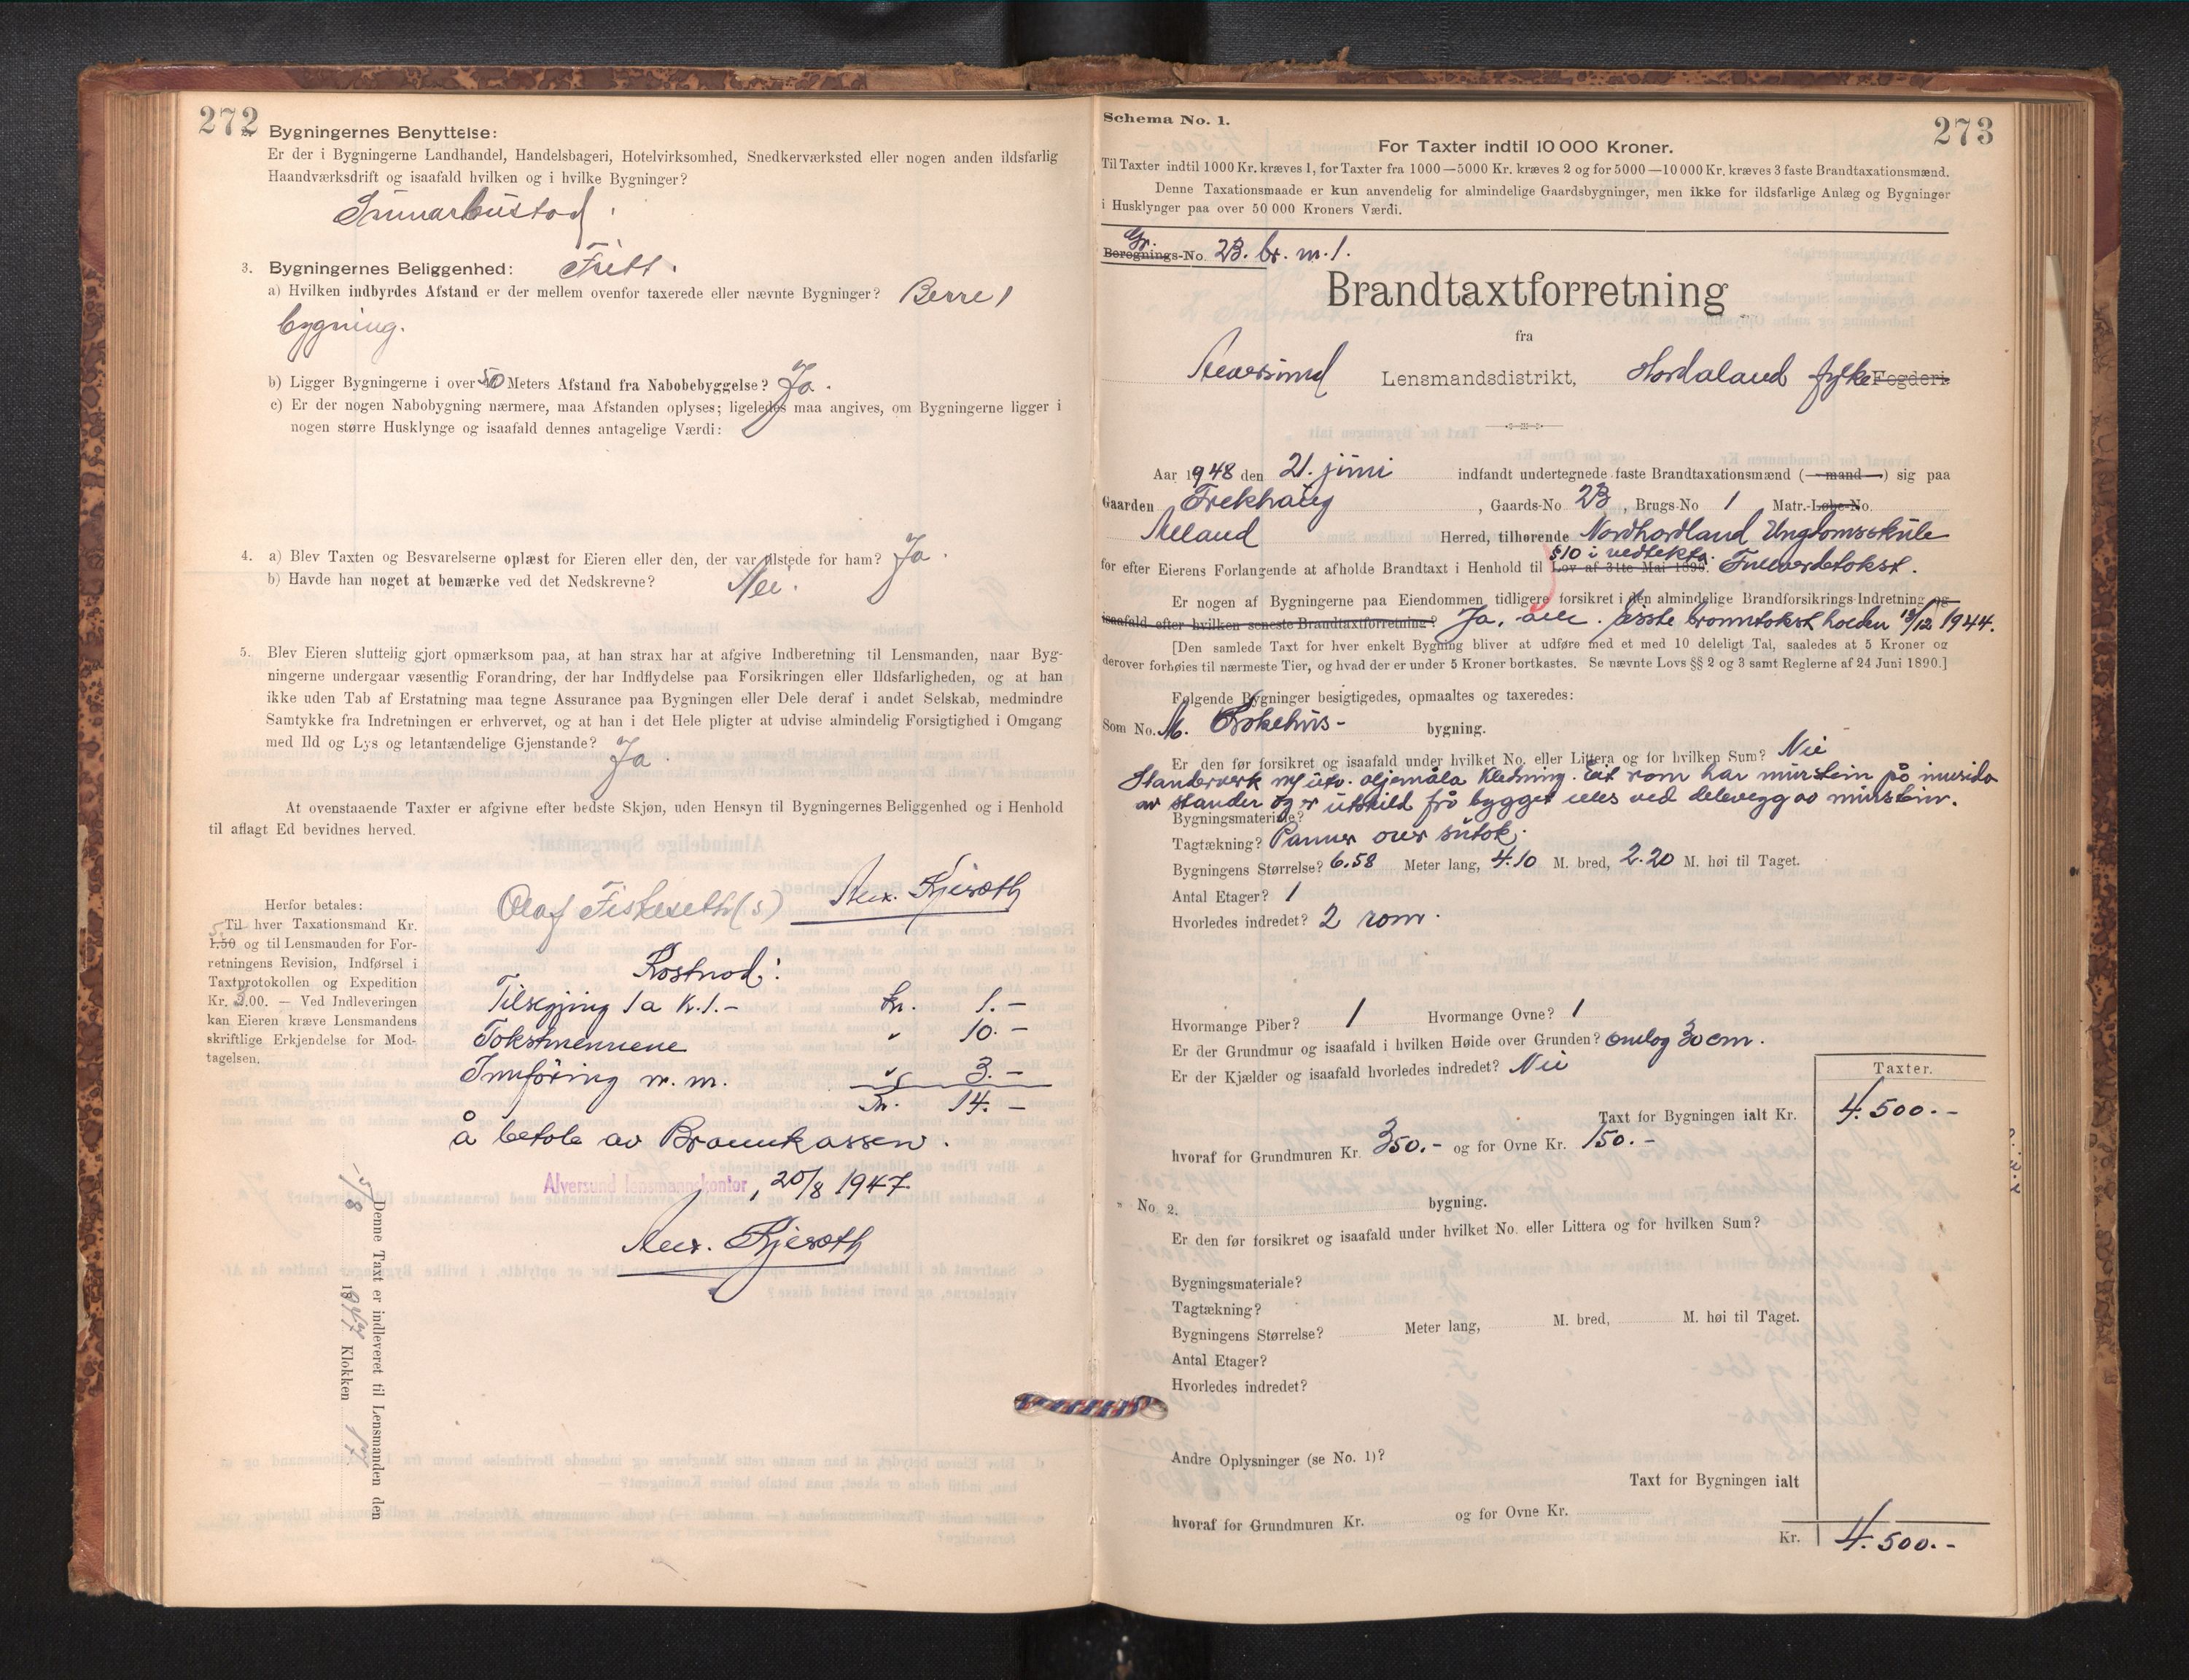 272
Bygningernes Benyttelse:
Er der i Bygningerne Landhandel, Handelsbageri, Hotelvirksomhed, Snedkerværksted eller nogen anden ildsfarlig
Haandværksdrift og isaafald hvilken og i hvilke Bygninger?
Sumarbustad.
3. Bygningernes Beliggenhed: Fritt.
a) Hvilken indbyrdes Afstand er der mellem ovenfor taxerede eller nævnte Bygninger? Berre 1
bygning.
b) Ligger Bygningerne i over 50 Meters Afstand fra Nabobebyggelse? Ja.
c) Er der nogen Nabobygning nærmere, maa Afstanden oplyses; ligeledes maa angives, om Bygningerne ligger i
nogen større Husklynge og isaafald dennes antagelige Værdi:
4. a) Blev Taxten og Besvarelserne oplæst for Eieren eller den, der var tilstede for ham? Ja.
b) Havde han noget at bemærke ved det Nedskrevne? Nei.
5. Blev Eieren sluttelig gjort opmærksom paa, at han strax har at afgive Indberetning til Lensmanden, naar Byg-
ningerne undergaar væsentlig Forandring, der har Indflydelse paa Forsikringen eller Ildsfarligheden, og at han
ikke uden Tab af Erstatning maa tegne Assurance paa Bygningen eller Dele deraf i andet Selskab, medmindre
Samtykke fra Indretningen er erhvervet, og at han i det Hele pligter at udvise almindelig Forsigtighed i Omgang
med Ild og Lys og letantændelige Gjenstande? Ja.
At ovenstaaende Taxter er afgivne efter bedste Skjøn, uden Hensyn til Bygningernes Beliggenhed og i Henhold
til aflagt Ed bevidnes herved.
Olaf Fiskeseth (s)
Herfor betales:
5.- Til hver Taxationsmand Kr.
1.50 og til Lensmanden for For-
retningens Revision, Indførsel i
Taxtprotokollen og Expedition
Kr. 3.00. — Ved Indleveringen
kan Eieren kræve Lensmandens
skriftlige Erkjendelse for Mod-
tagelsen.
Kostnad:
Tilsegjing 1 a k. 1.- kr. 1.-
Takstmennene " 10.-
Innföring m. m. " 3.-
Kr. 14.-
å betale av Brannkassen.
Alversund lensmannskontor, 20/8 1947
Denne Taxt er indleveret til Lensmanden den
15/8 1947 Klokken 17
Schema No. 1.
273
For Taxter indtil 10 000 Kroner.
Til Taxter indtil 1000 Kr. kræves 1, for Taxter fra 1000—5000 Kr. kræves 2 og for 5000—10000 Kr. kræves 3 faste Brandtaxationsmænd.
Denne Taxationsmaade er kun anvendelig for almindelige Gaardsbygninger, men ikke for ildsfarlige Anlæg og Bygninger
i Husklynger paa over 50 000 Kroners Værdi.
Gr.
Beregnings-No. 23. br. nr. 1.
Brandtaxtforretning
fra
Alversund Lensmandsdistrikt, Hordaland fylke Fogderi.
Aar 1948 den 21. juni indfandt undertegnede faste Brandtaxationsmænd (—mand—) sig paa
Gaarden Frekhaug, Gaards-No 23, Brugs-No 1 Matr.-Løbe-No.
Meland Herred, tilhørende Nordhordland Ungdomsskule
§ 10 i vedtekta.
for efter Eierens Forlangende at afholde Brandtaxt i Henhold til Lov af 31te Mai 1890. Fullverdetakst.
Er nogen af Bygningerne paa Eiendommen tidligere forsikret i den almindelige Brandforsikrings-Indretning og
isaafald efter hvilken seneste Brandtaxtforretning? Ja, alle. Siste branntakst halden 19/12 1944.
[Den samlede Taxt for hver enkelt Bygning bliver at udføre med et med 10 deleligt Tal, saaledes at 5 Kroner og
derover forhøies til nærmeste Tier, og hvad der er under 5 Kroner bortkastes. Se nævnte Lovs §§ 2 og 3 samt Reglerne af 24 Juni 1890.]
Følgende Bygninger besigtigedes, opmaaltes og taxeredes:
Som No. M. Brakehus- bygning.
Er den før forsikret og isaafald under hvilket No. eller Littera og for hvilken Sum? Nei
Standerverk m/ utv. oljemåla kledning. Eit rom har murstein på innsida
av stander og er utskild frå bygget elles ved delevegg av murstein.
Bygningsmateriale?
Tagtækning? Panner over sutak.
Bygningens Størrelse? 6.58 Meter lang, 4.10 M. bred, 2.20 M. høi til Taget.
Antal Etager? 1
Hvorledes indredet? 2 rom.
Hvormange Piber? 1 Hvormange Ovne? 1
Er der Grundmur og isaafald i hvilken Høide over Grunden? omlag 30 cm.
Er der Kjælder og isaafald hvorledes indredet? Nei
Taxter.
Taxt for Bygningen ialt Kr. 4.500.-
hvoraf for Grundmuren Kr. 350.- og for Ovne Kr. 150.-
" No 2. bygning.
Er den før forsikret og isaafald under hvilket No. eller Littera og for hvilken Sum?
Bygningsmateriale?
Tagtækning?
Bygningens Størrelse? Meter lang, M. bred, M. høi til Taget.
Antal Etager?
Hvorledes indredet?
Andre Oplysninger (se No. 1)?
Taxt for Bygningen ialt
hvoraf for Grundmuren Kr. og for Ovne Kr.
Kr. 4.500.-